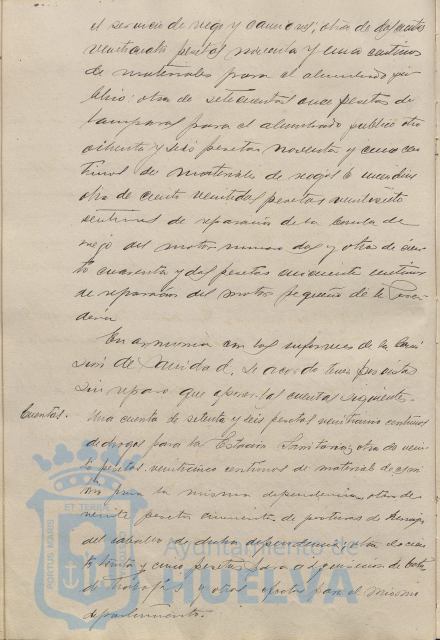 el servicio de riego y camiones; otra de doscientas
veinticuatro pesetas noventa y cinco centimos
de materiales para el alumbrado pu-
blico: otra de setecientas once pesetas de
lamparas para el alumbrado publico otra
ochenta y seis pesetas noventa y cinco cen
timos de materiales de
otra de ciento veintidos pesetas veintiocho
centimos de reparación de la de
riego del motor numero dos y otra de cien-
to cuarenta y dos pesetas cincuenta centimos
de reparación del motor pequeño de la Pesca-
deria
En armonia con los informes de la Comi
sión de Sanidad, se acordo
sin reparo que oponer las cuentas siguientes.
Cuentas. Una cuenta de setenta y seis pesetas veintiun centimos
de drogas para la Estación Sanitaria; otra de vein
te pesetas veinticinco centimos de material de
para la misma dependencia, otra de
veinte pesetas cincuenta de
del caballo de dicha dependencia; otra de cien
to treinta y cinco pesetas para adquisición de
de y otros efectos para el mismo
departamento.
ET TERRÆ
PORTUS MARIS
Ayuntamiento de
HUELVA